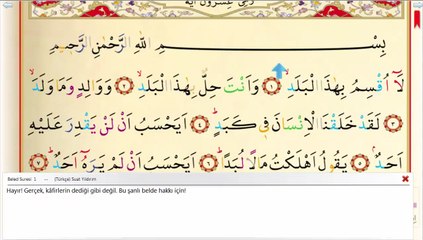 وهى عشرون آية
بِسْمِ اللهِ الرَّحْمٰنِ الرَّحِيمِ
لَٓا اُقْسِمُ بِهٰذَا الْبَلَدِۙ ﴿١﴾ وَاَنْتَ حِلٌّ بِهٰذَا الْبَلَدِۙ ﴿٢﴾ وَوَالِدٍ وَمَا وَلَدَۙ
﴿٣﴾ لَقَدْ خَلَقْنَا الْاِنْسَانَ فٖي كَبَدٍؕ ﴿٤﴾ اَيَحْسَبُ اَنْ لَنْ يَقْدِرَ عَلَيْهِ
اَحَدٌۘ ﴿٥﴾ يَقُولُ اَهْلَكْتُ مَالًا لُبَدًاؕ ﴿٦﴾ اَيَحْسَبُ اَنْ لَمْ يَرَهُٓ اَحَدٌؕ ﴿٧﴾
Beled Suresi 1 -- (Türkçe) Suat Yıldırım
Hayır! Gerçek, kâfirlerin dediği gibi değil. Bu şanlı belde hakkı için!